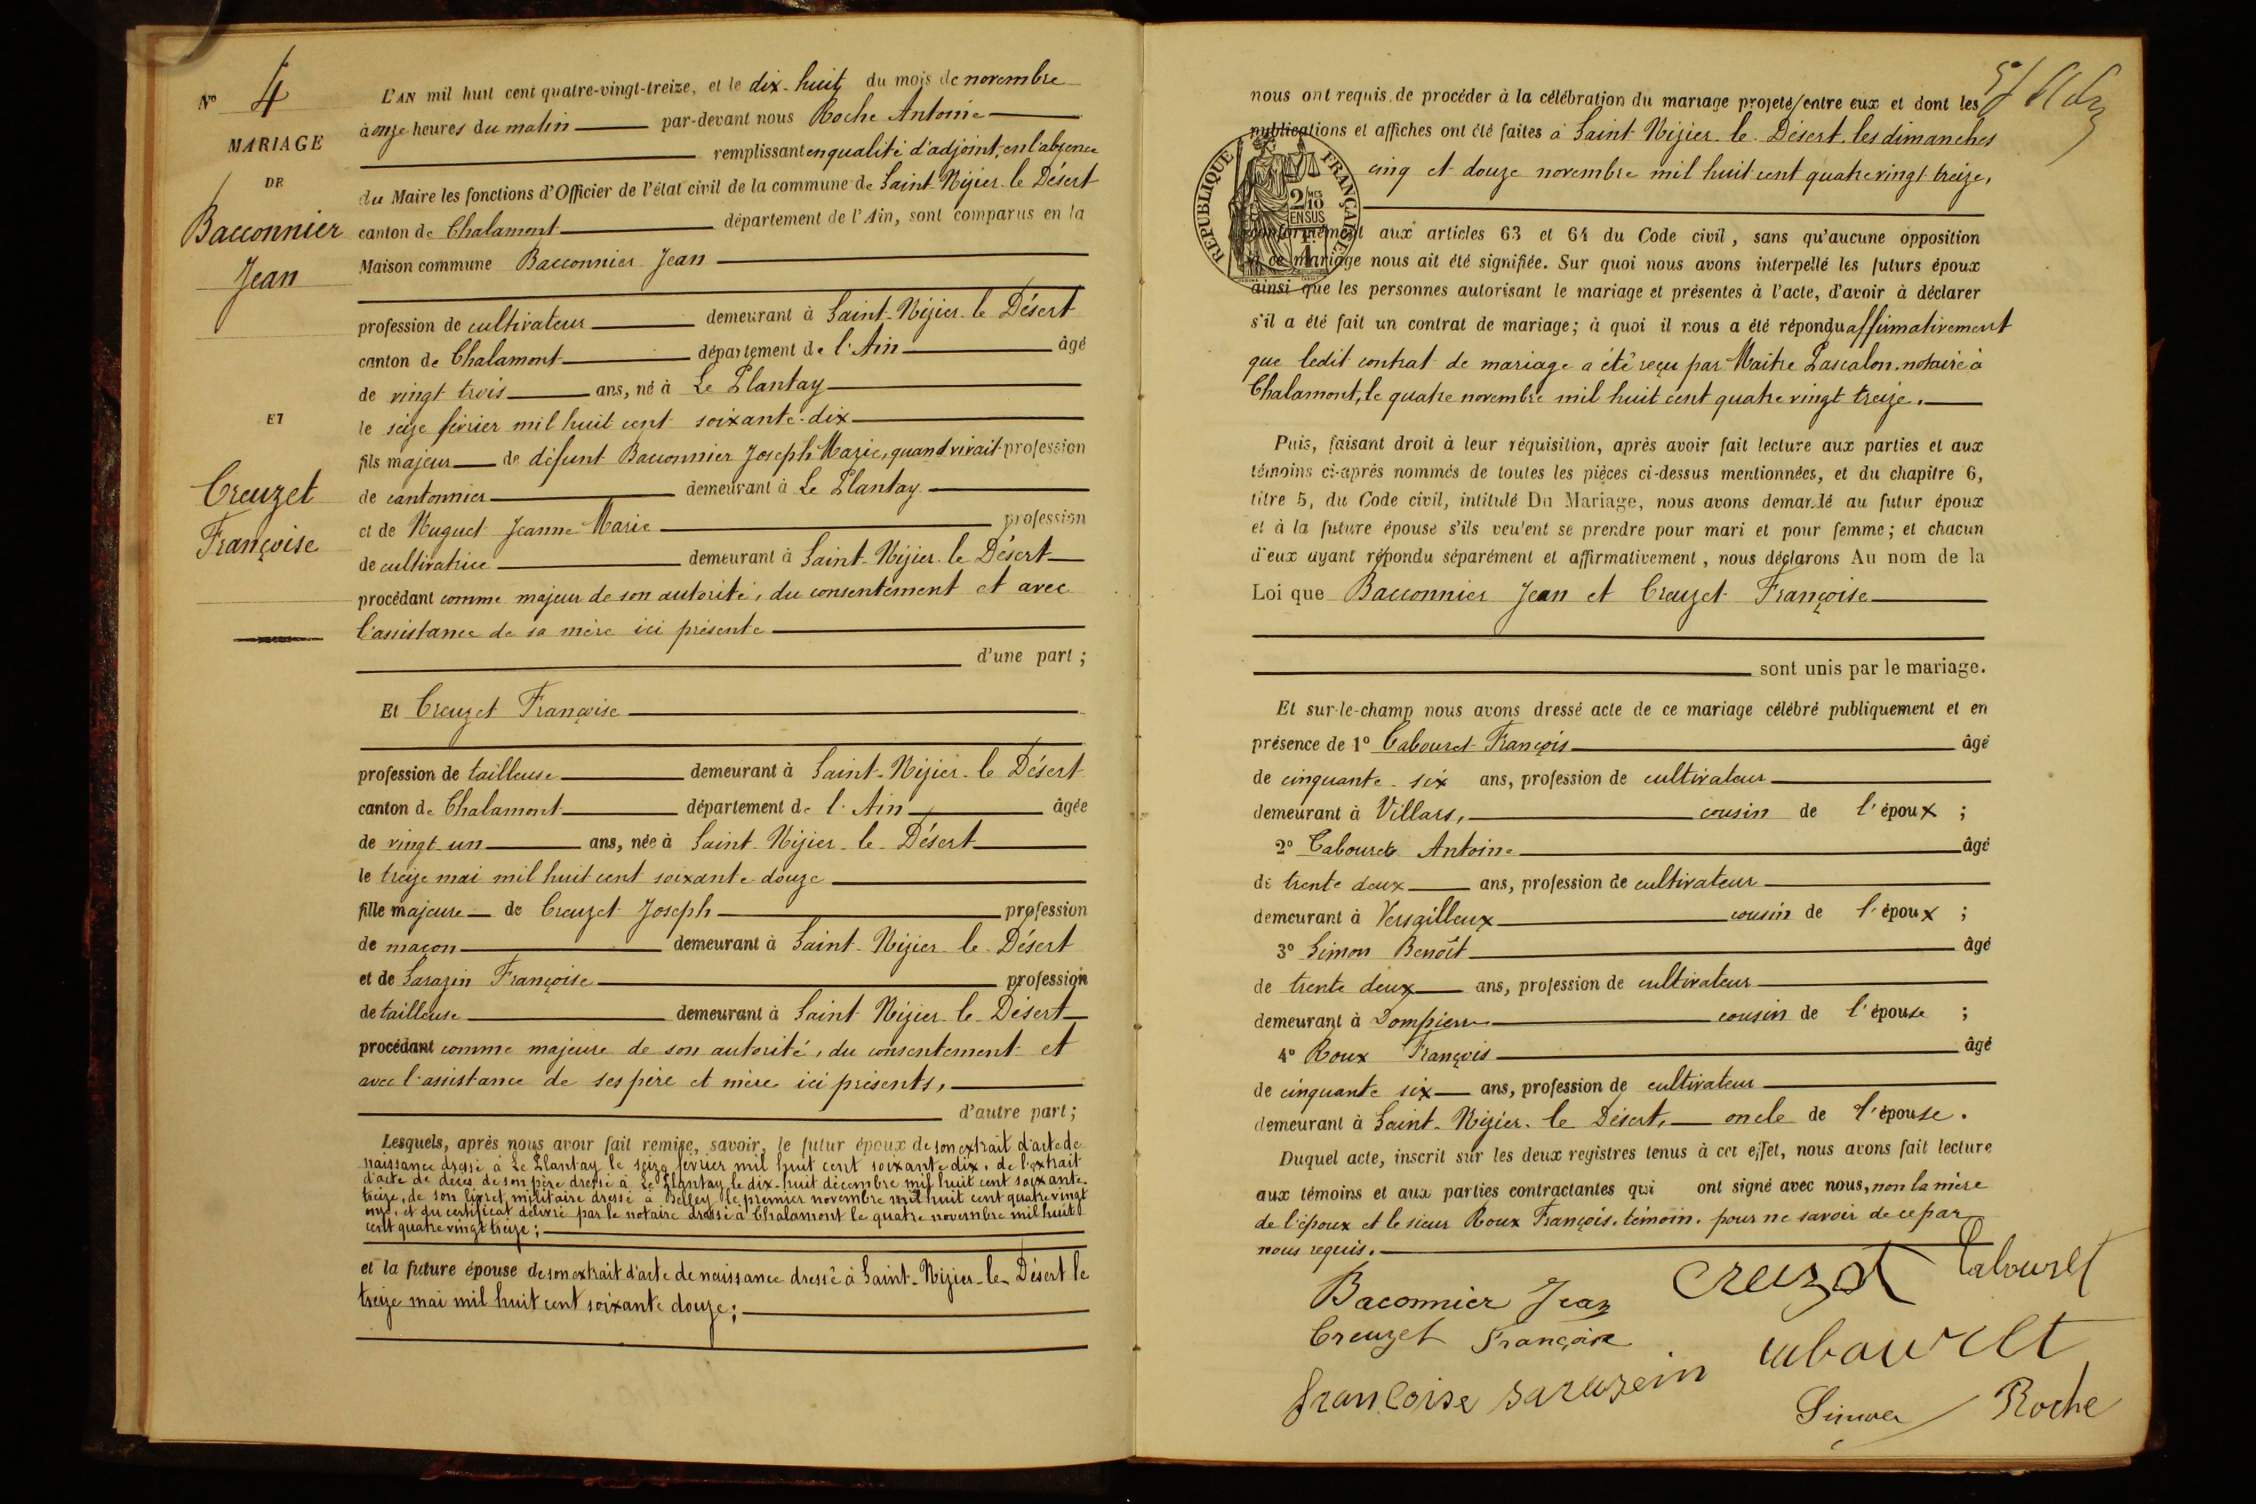 N° 4
MARIAGE
DE
Bacconnier
Jean
ET
Creuzet
Françoise
L'AN mil huit cent quatre-vingt-treize, et le dix-huit du mois de novembre
à onze heures du matin par-devant nous Roche Antoine
remplissant en qualité d'adjoint, en l'absence
du Maire les fonctions d'Officier de l'état civil de la commune de Saint-Nizier-le-Désert
canton de Chalamont département de l'Ain, sont comparus en la
Maison commune Bacconnier Jean
profession de cultivateur demeurant à Saint-Nizier-le Désert
canton de Chalamont département de l'Ain âgé
de vingt trois ans, né à Le Plantay
le seize février mil huit cent soixante-dix
fils majeur de défunt Bacconnier Joseph Marie, quand vivait profession
de cantonnier demeurant à Le Plantay
et de Nuguet Jeanne Marie profession
de cultivatrice demeurant à Saint-Nizier-le Désert
procédant comme majeur de son autorité, du consentement et avec
l'assistance de sa mère ici présente
d'une part ;
Et Creuzet Françoise
profession de tailleuse demeurant à Saint-Nizier-le Désert
canton de Chalamont département de l'Ain âgée
de vingt un ans, née à Saint-Nizier-le-Désert
le treize mai mil huit cent soixante douze
fille majeure de Creuzet Joseph profession
de maçon demeurant à Saint-Nizier-le-Désert
et de Sarazin Françoise profession
de tailleuse demeurant à Saint Nizier-le-Désert
procédant comme majeure de son autorité, du consentement et
avec l'assistance de ses père et mère ici présents,
d'autre part ;
Lesquels, après nous avoir fait remise, savoir, le futur époux de son extrait d'acte de
naissance dressé à Le Plantay le seize février mil huit cent soixante dix, de l'extrait
d'acte de décès de son père dressé à Le Plantay le dix-huit décembre mil huit cent soixante-
treize, de son livret militaire dressé à Belley le premier novembre mil huit cent quatre vingt
onze, et du certificat délivré par le notaire dressé à Chalamont le quatre novembre mil huit
cent quatre vingt treize ;
et la future épouse de son extrait d'acte de naissance dressé à Saint-Nizier-le-Désert le
treize mai mil huit cent soixante douze ;
nous ont requis de procéder à la célébration du mariage projeté entre eux et dont les
publications et affiches ont été faites à Saint-Nizier-le-Désert, les dimanches
cinq et douze novembre mil huit cent quatre vingt treize,
RÉPUBLIQUE FRANÇAISE
2/10
EN SUS
conformément aux articles 63 et 64 du Code civil, sans qu'aucune opposition
à ce mariage nous ait été signifiée. Sur quoi nous avons interpellé les futurs époux
ainsi que les personnes autorisant le mariage et présentes à l'acte, d'avoir à déclarer
s'il a été fait un contrat de mariage ; à quoi il nous a été répondu affirmativement
que ledit contrat de mariage a été reçu par Maître Pascalon, notaire à
Chalamont, le quatre novembre mil huit cent quatre vingt treize.
Puis, faisant droit à leur réquisition, après avoir fait lecture aux parties et aux
témoins ci-après nommés de toutes les pièces ci-dessus mentionnées, et du chapitre 6,
titre 5, du Code civil, intitulé Du Mariage, nous avons demandé au futur époux
et à la future épouse s'ils veulent se prendre pour mari et pour femme ; et chacun
d'eux ayant répondu séparément et affirmativement, nous déclarons Au nom de la
Loi que Bacconnier Jean et Creuzet Françoise
sont unis par le mariage.
Et sur-le-champ nous avons dressé acte de ce mariage célébré publiquement et en
présence de 1° Cabouret François âgé
de cinquante-six ans, profession de cultivateur
demeurant à Villars, cousin de l'époux ;
2° Cabouret Antoine âgé
de trente deux ans, profession de cultivateur
demeurant à Versailleux cousin de l'époux ;
3° Simon Benoît âgé
de trente deux ans, profession de cultivateur
demeurant à Dompierre cousin de l'épouse ;
4° Roux François âgé
de cinquante six ans, profession de cultivateur
demeurant à Saint-Nizier-le Désert, oncle de l'épouse.
Duquel acte, inscrit sur les deux registres tenus à cet effet, nous avons fait lecture
aux témoins et aux parties contractantes qui ont signé avec nous, non la mère
de l'époux et le sieur Roux François, témoin, pour ne savoir de ce par
nous requis.
Baconnier Jean creuzet Cabouret
Creuzet Françoise
françoise sarazein cabouret
Simon Roche